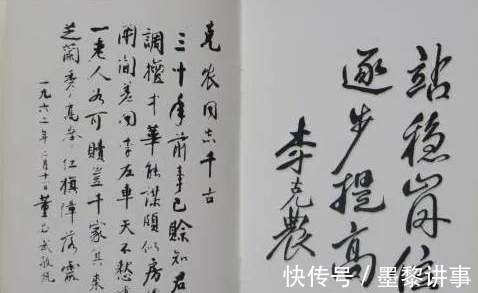 克农同志千古
三十年前事已赊知君
调擅才华能谋颇似房
用间差同李左车天不慭遗
一老人如可赎岂千家其来
一九六二年二月十日董必武敬挽
站稳岗位
逐步提高
李克农
快传号／墨黎讲事